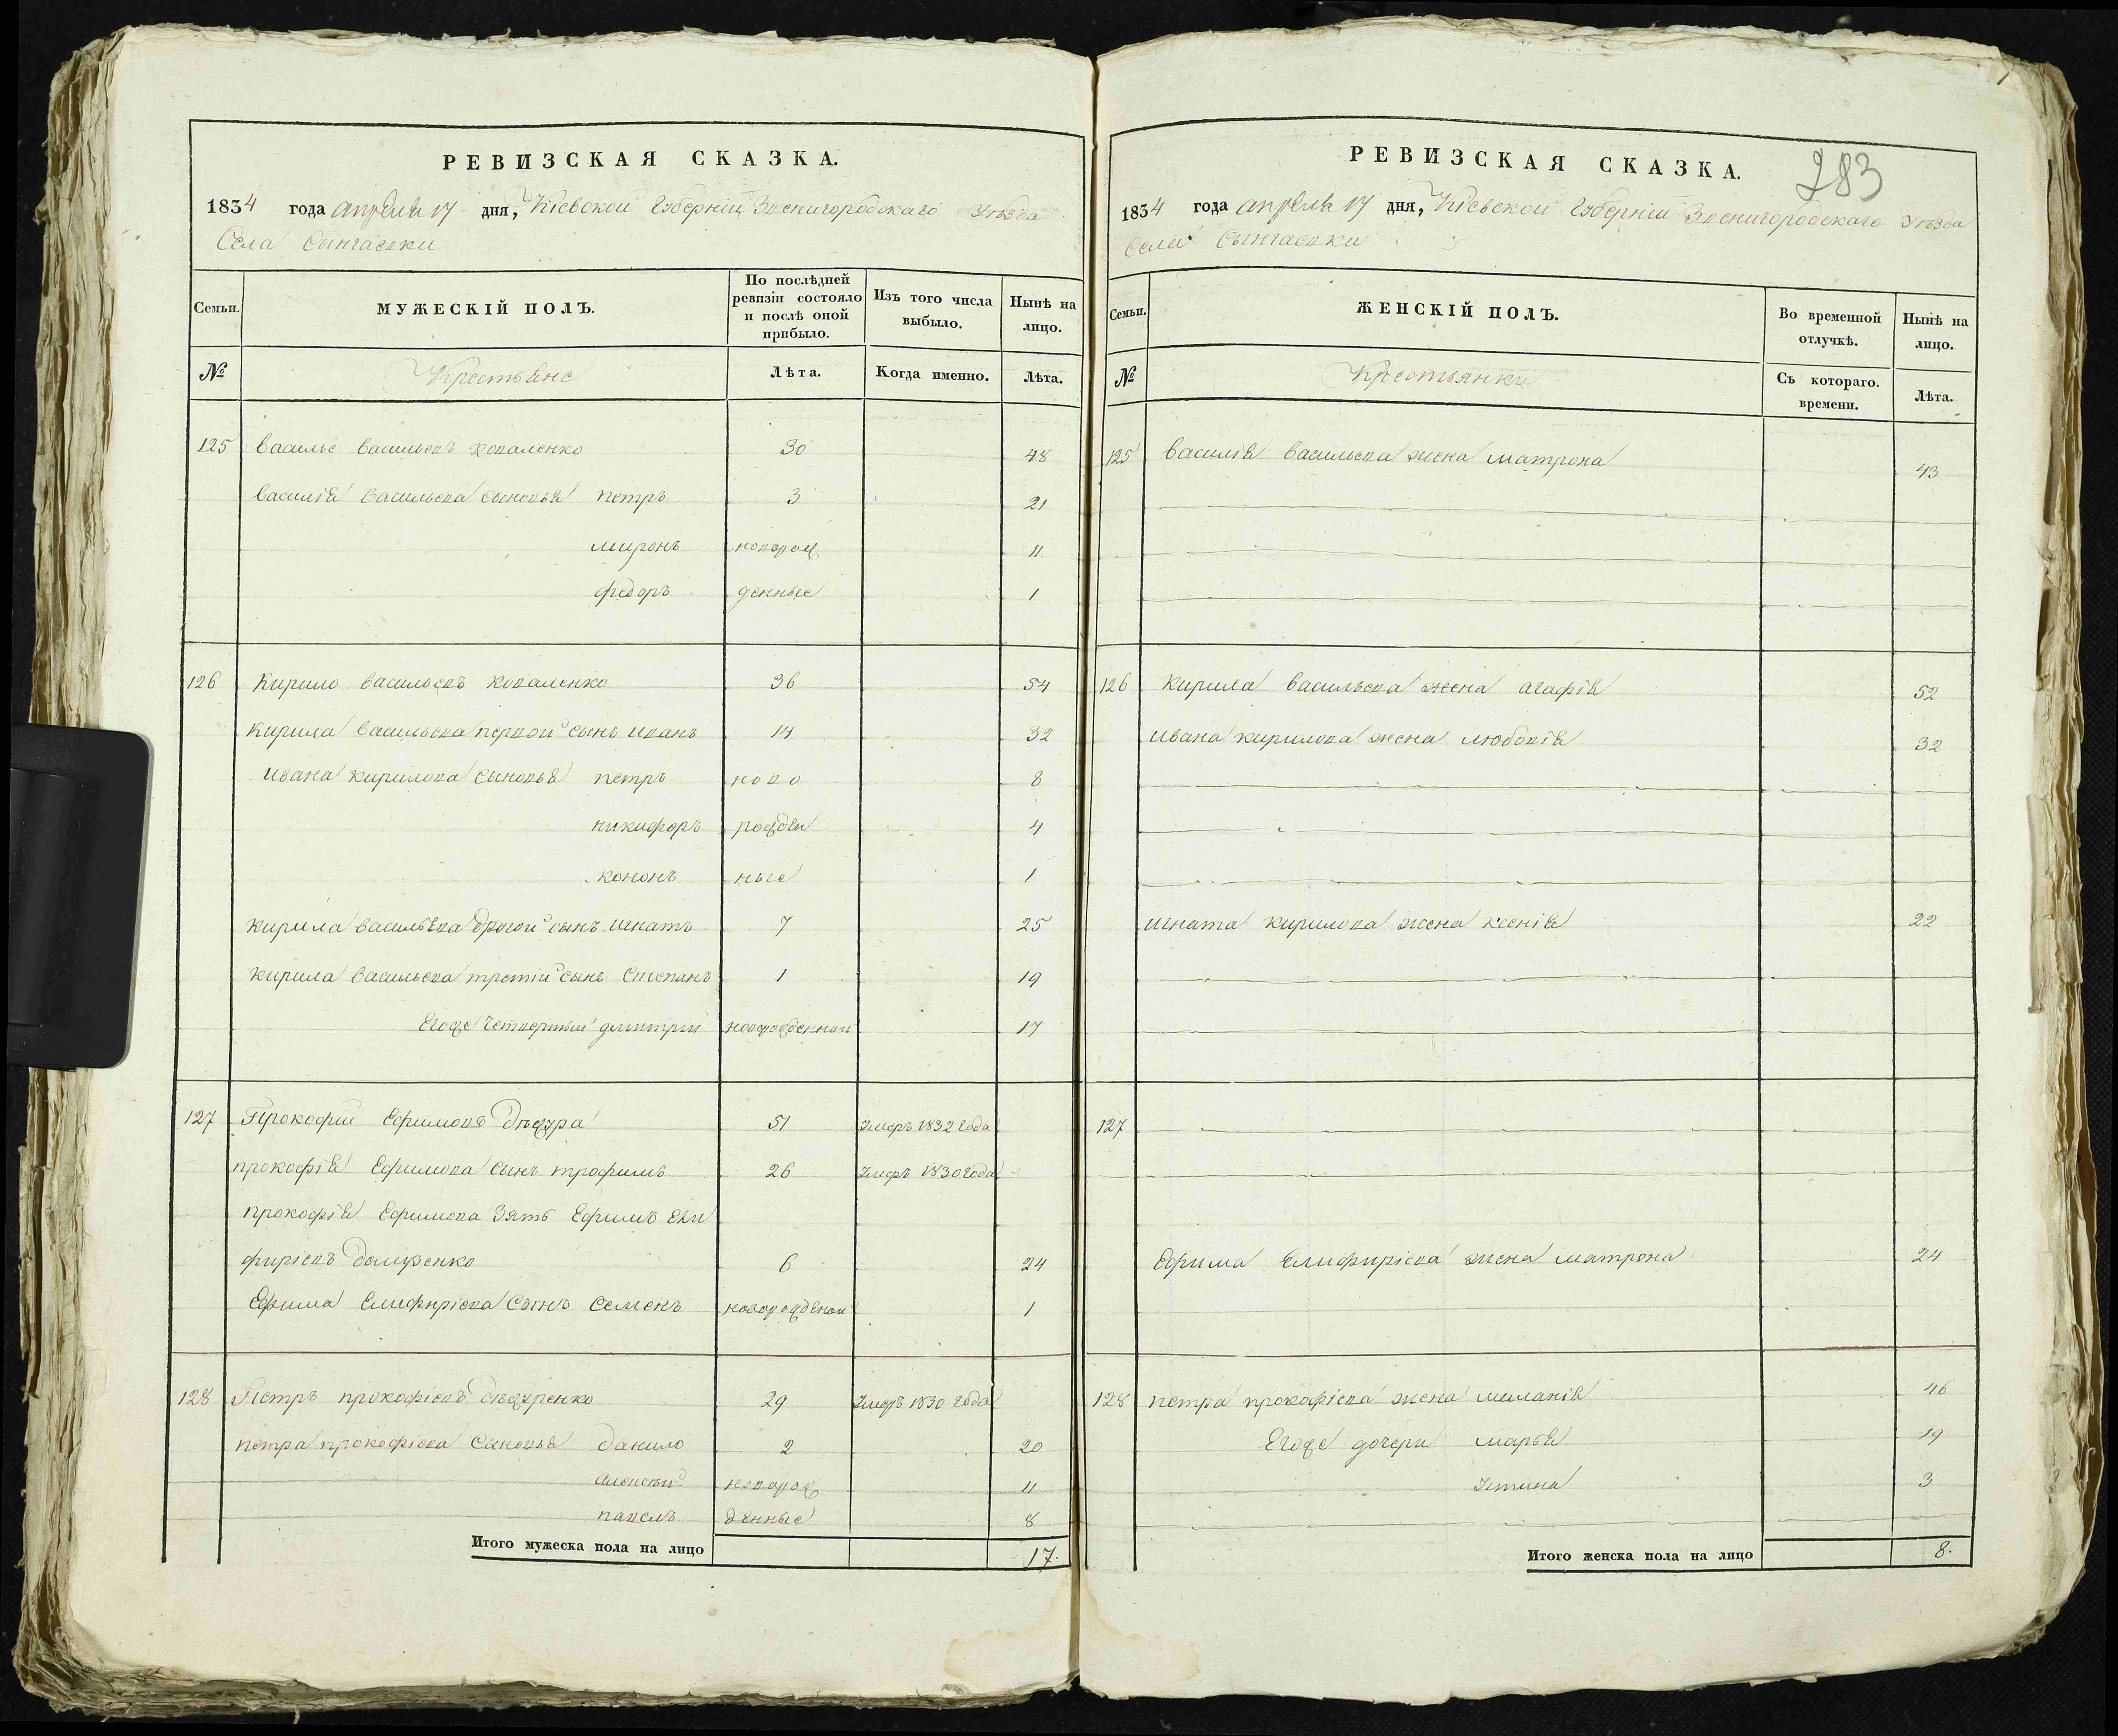 РЕВИЗСКАЯ СКАЗКА.
1834 года апреля 17 дня, Кіевской Губерніи Звенигородскаго Уѣзда
Села
МУЖЕСКІЙ ПОЛЪ.
Семьи. По послѣдней ревизіи состояло и послѣ оной прибыло. Изъ того числа выбыло. Нынѣ на лицо.
№ Крестьяне Лѣта. Когда именно. Лѣта.
125 Василье Васильевъ Коваленко 30 48
Василія Васильева сыновья петръ 3 21
миронъ новорож 11
федоръ денные 1
126 Кирило Васильевъ Коваленко 36 54
Кирила Васильева первой сынъ иванъ 14 32
Ивана Кирилова сыновья петръ ново 8
никифоръ рожден 4
кононъ ные 1
Кирила Васильева другой сынъ игнатъ 7 25
Кирила Васильева третій сынъ Степанъ 1 19
Егоже четвертый дмитрій новорожденной 17
127 Прокофій Ефимовъ 51 Умеръ 1832 года
прокофія Ефимова сынъ трофимъ 26 Умеръ 1830 года
прокофія Ефимова Зять Ефимъ Ели
фиріевъ 6 24
Ефима Елифиріева Сынъ Семенъ новорожденой 1
128 Петръ прокофіевъ 29 Умеръ 1830 года
петра прокофіева Сыновья данило 2 20
Алексѣй новорож 11
павелъ денные 8
Итого мужеска пола на лицо 17.
283
РЕВИЗСКАЯ СКАЗКА.
1834 года апреля 17 дня, Кіевской Губерніи Звенигородскаго Уѣзда
Села
Семьи. ЖЕНСКІЙ ПОЛЪ. Во временной отлучкѣ. Нынѣ на лицо.
№ Крестьянки Съ котораго. времени. Лѣта.
125 Василія Васильева жена матрона 43
126 Кирила Васильева жена агафія 52
Ивана Кирилова жена любовія 32
Игната Кирилова жена ксенія 22
127
Ефима Елифиріева жена матрона 24
128 петра прокофіева жена меланія 46
Егоже дочери марья 19
Устина 3
Итого женска пола на лицо 8.